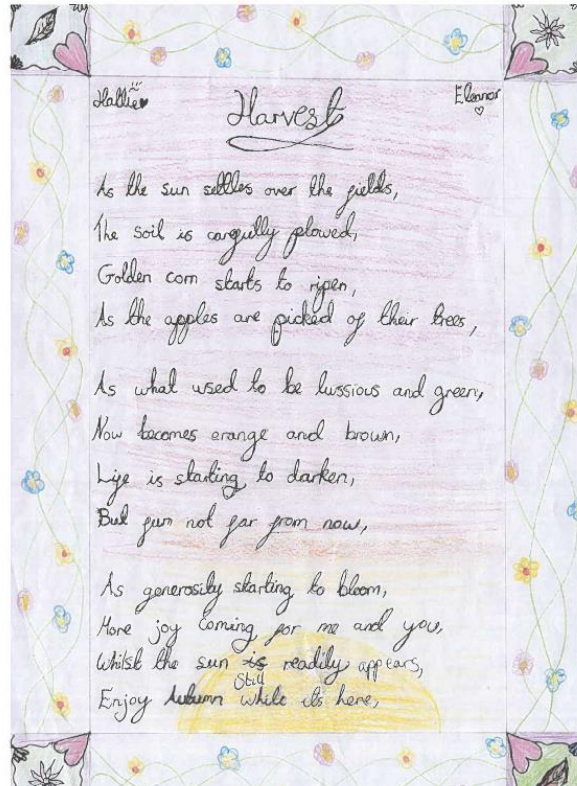 Hallie
Eleanor
Harvest
As the sun settles over the fields,
The soil is carefully plowed,
Golden corn starts to ripen,
As the apples are picked of their trees,
As what used to be lussious and green,
Now becomes orange and brown,
Life is starting to darken,
But fun not far from now,
As generosity starting to bloom,
More joy coming for me and you,
Whilst the sun is readily appears,
Still
Enjoy Autumn while its here,